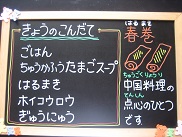 きょうのこんだて
ごはん
ちゅうかふうたまごスープ
はるまき
ホイコウロウ
ぎゅうにゅう
はるまき
春巻
ちゅうごくりょうり
中国料理の
てんしん
点心のひとつ
です